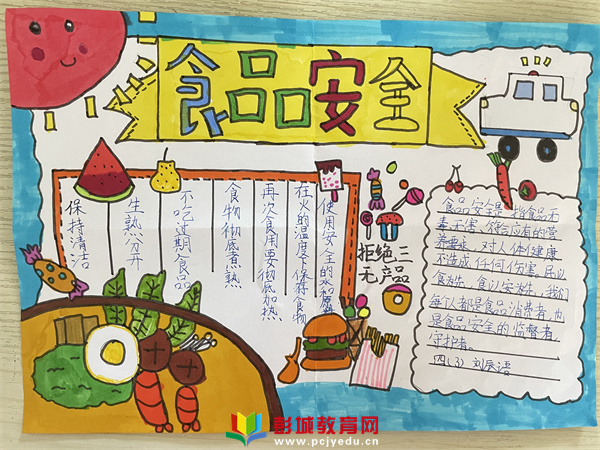 食品安全
保持清洁
生熟分开
不吃过期食品
食物彻底煮熟
再次食用要彻底加热
在火的温度下保存食物
使用安全的水和原
拒绝三
无产品
食品安全是指食品无
毒、无害，符合应有的营
养要求，对人体健康
不造成任何伤害，民以
食为先，食以安为先，我们
每个人都是食品消费者，也
是食品安全的监督者，
守护者。
四（3）刘辰语
彭城教育网
www.pcjyedu.cn